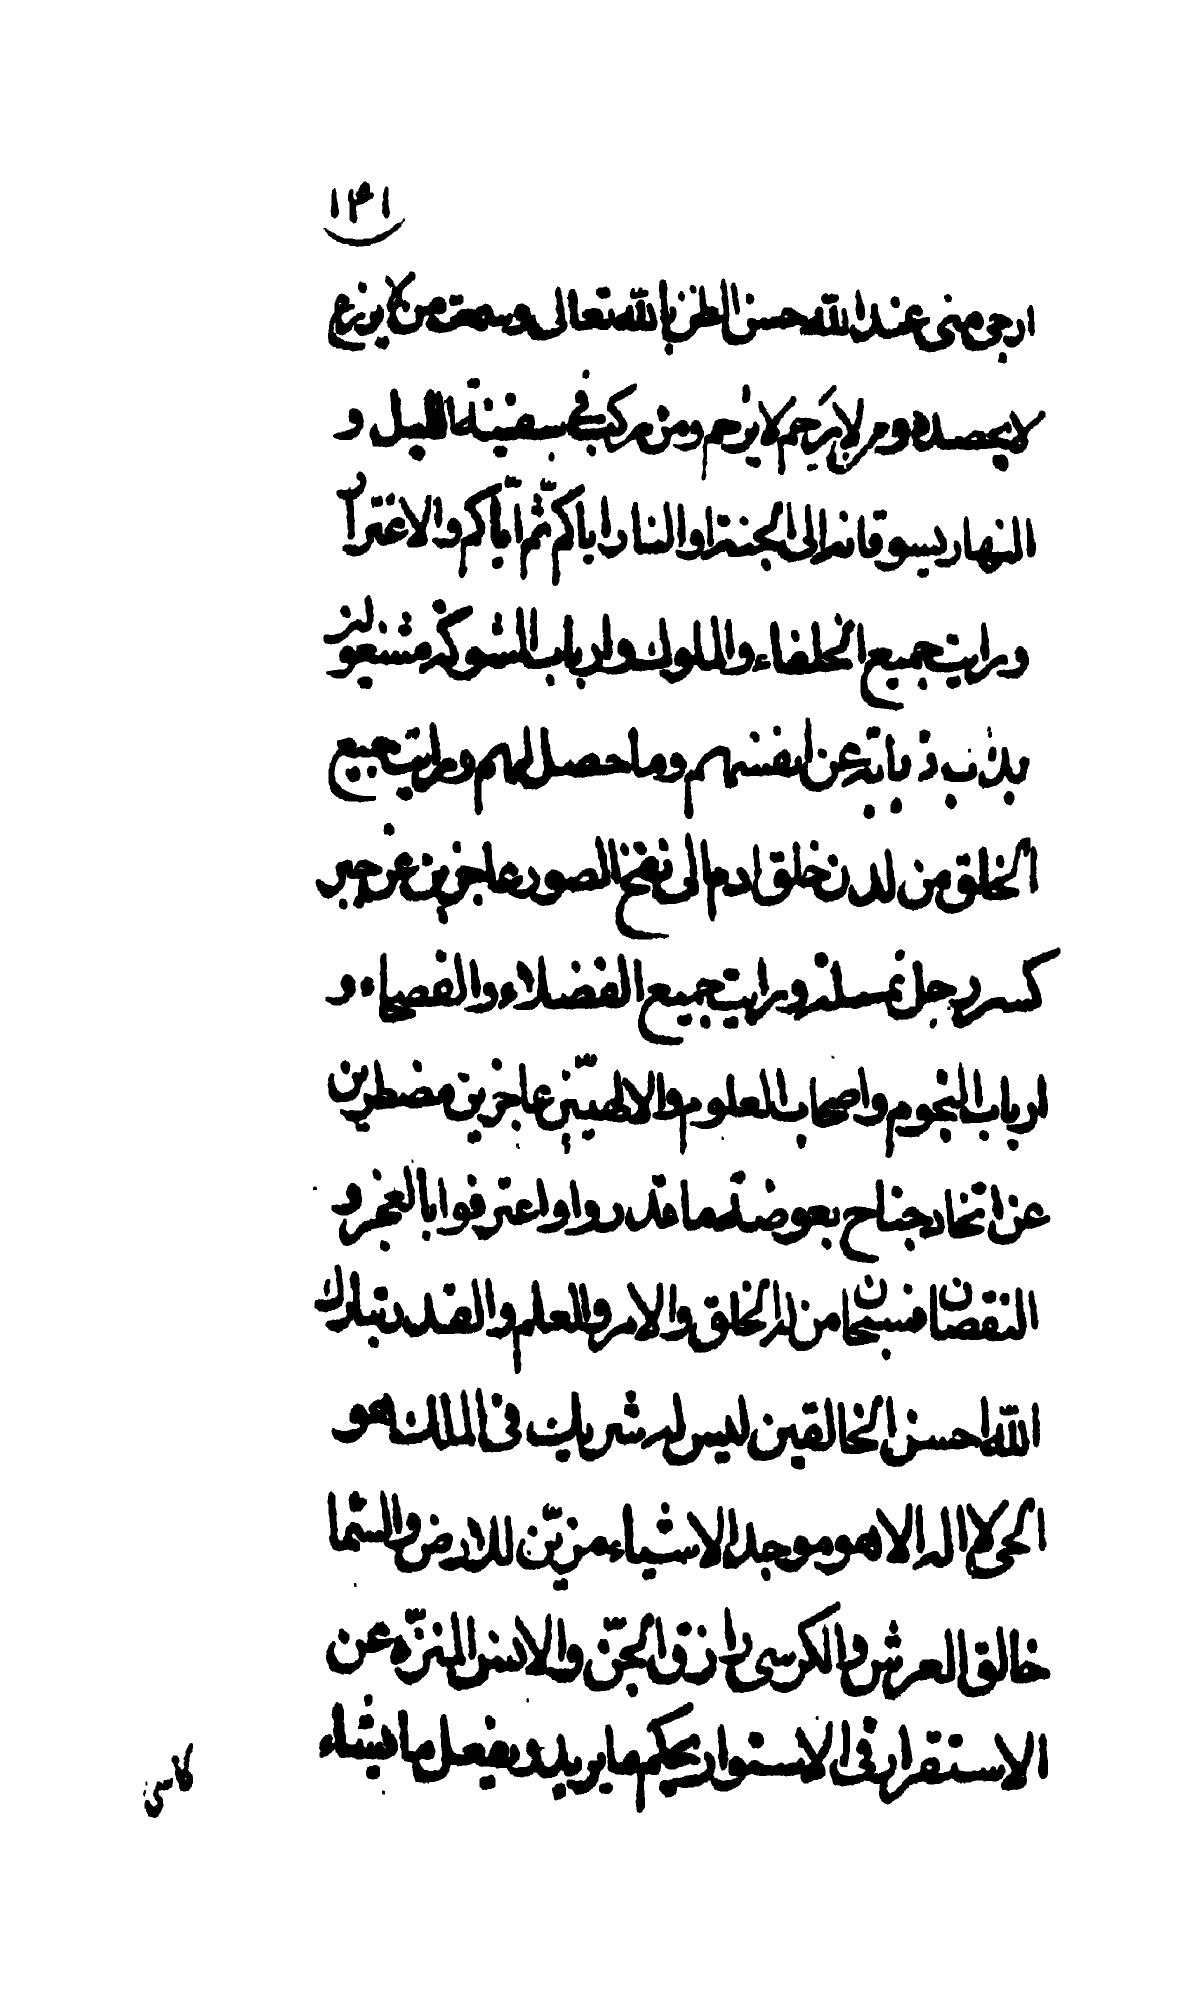 ١٣١
ارجى منى عند الله حسن الظن بالله تعالى وسمعت من لا يزرع
لا يحصده ومن لا يَرحم لا يُرحم ومن مركب في سفينة الليل و
النهار يسوقانه الى الجنة او النار اياكم ثم اياكم والاغترار
ورايت جميع الخلفاء والملوك وارباب الشوكة مشغولين
بذب ذبابة عن انفسهم وما حصل لهم ورايت جميع
الخلق من لدن خلق ادم الى نفخ الصور عاجزين عن جبر
كسر رجل نملة ورايت جميع الفضلاء والفصحاء و
ارباب النجوم واصحاب العلوم والالهيين عاجزين مضطرين
عن اتخاد جناح بعوضة ما قدروا واعترفوا بالعجز و
النقصان فسبحان من له الخلق والامر والعلم والقدر تبارك
الله احسن الخالقين ليس له شريك في الملك هو
الحى لا اله الا هو موجد الاشياء مزين للارض والسما
خالق العرش والكرسى رازق الجن والانس المنزه عن
الاستقرار في الاستوار يحكم ما يريد ويفعل ما يشاء